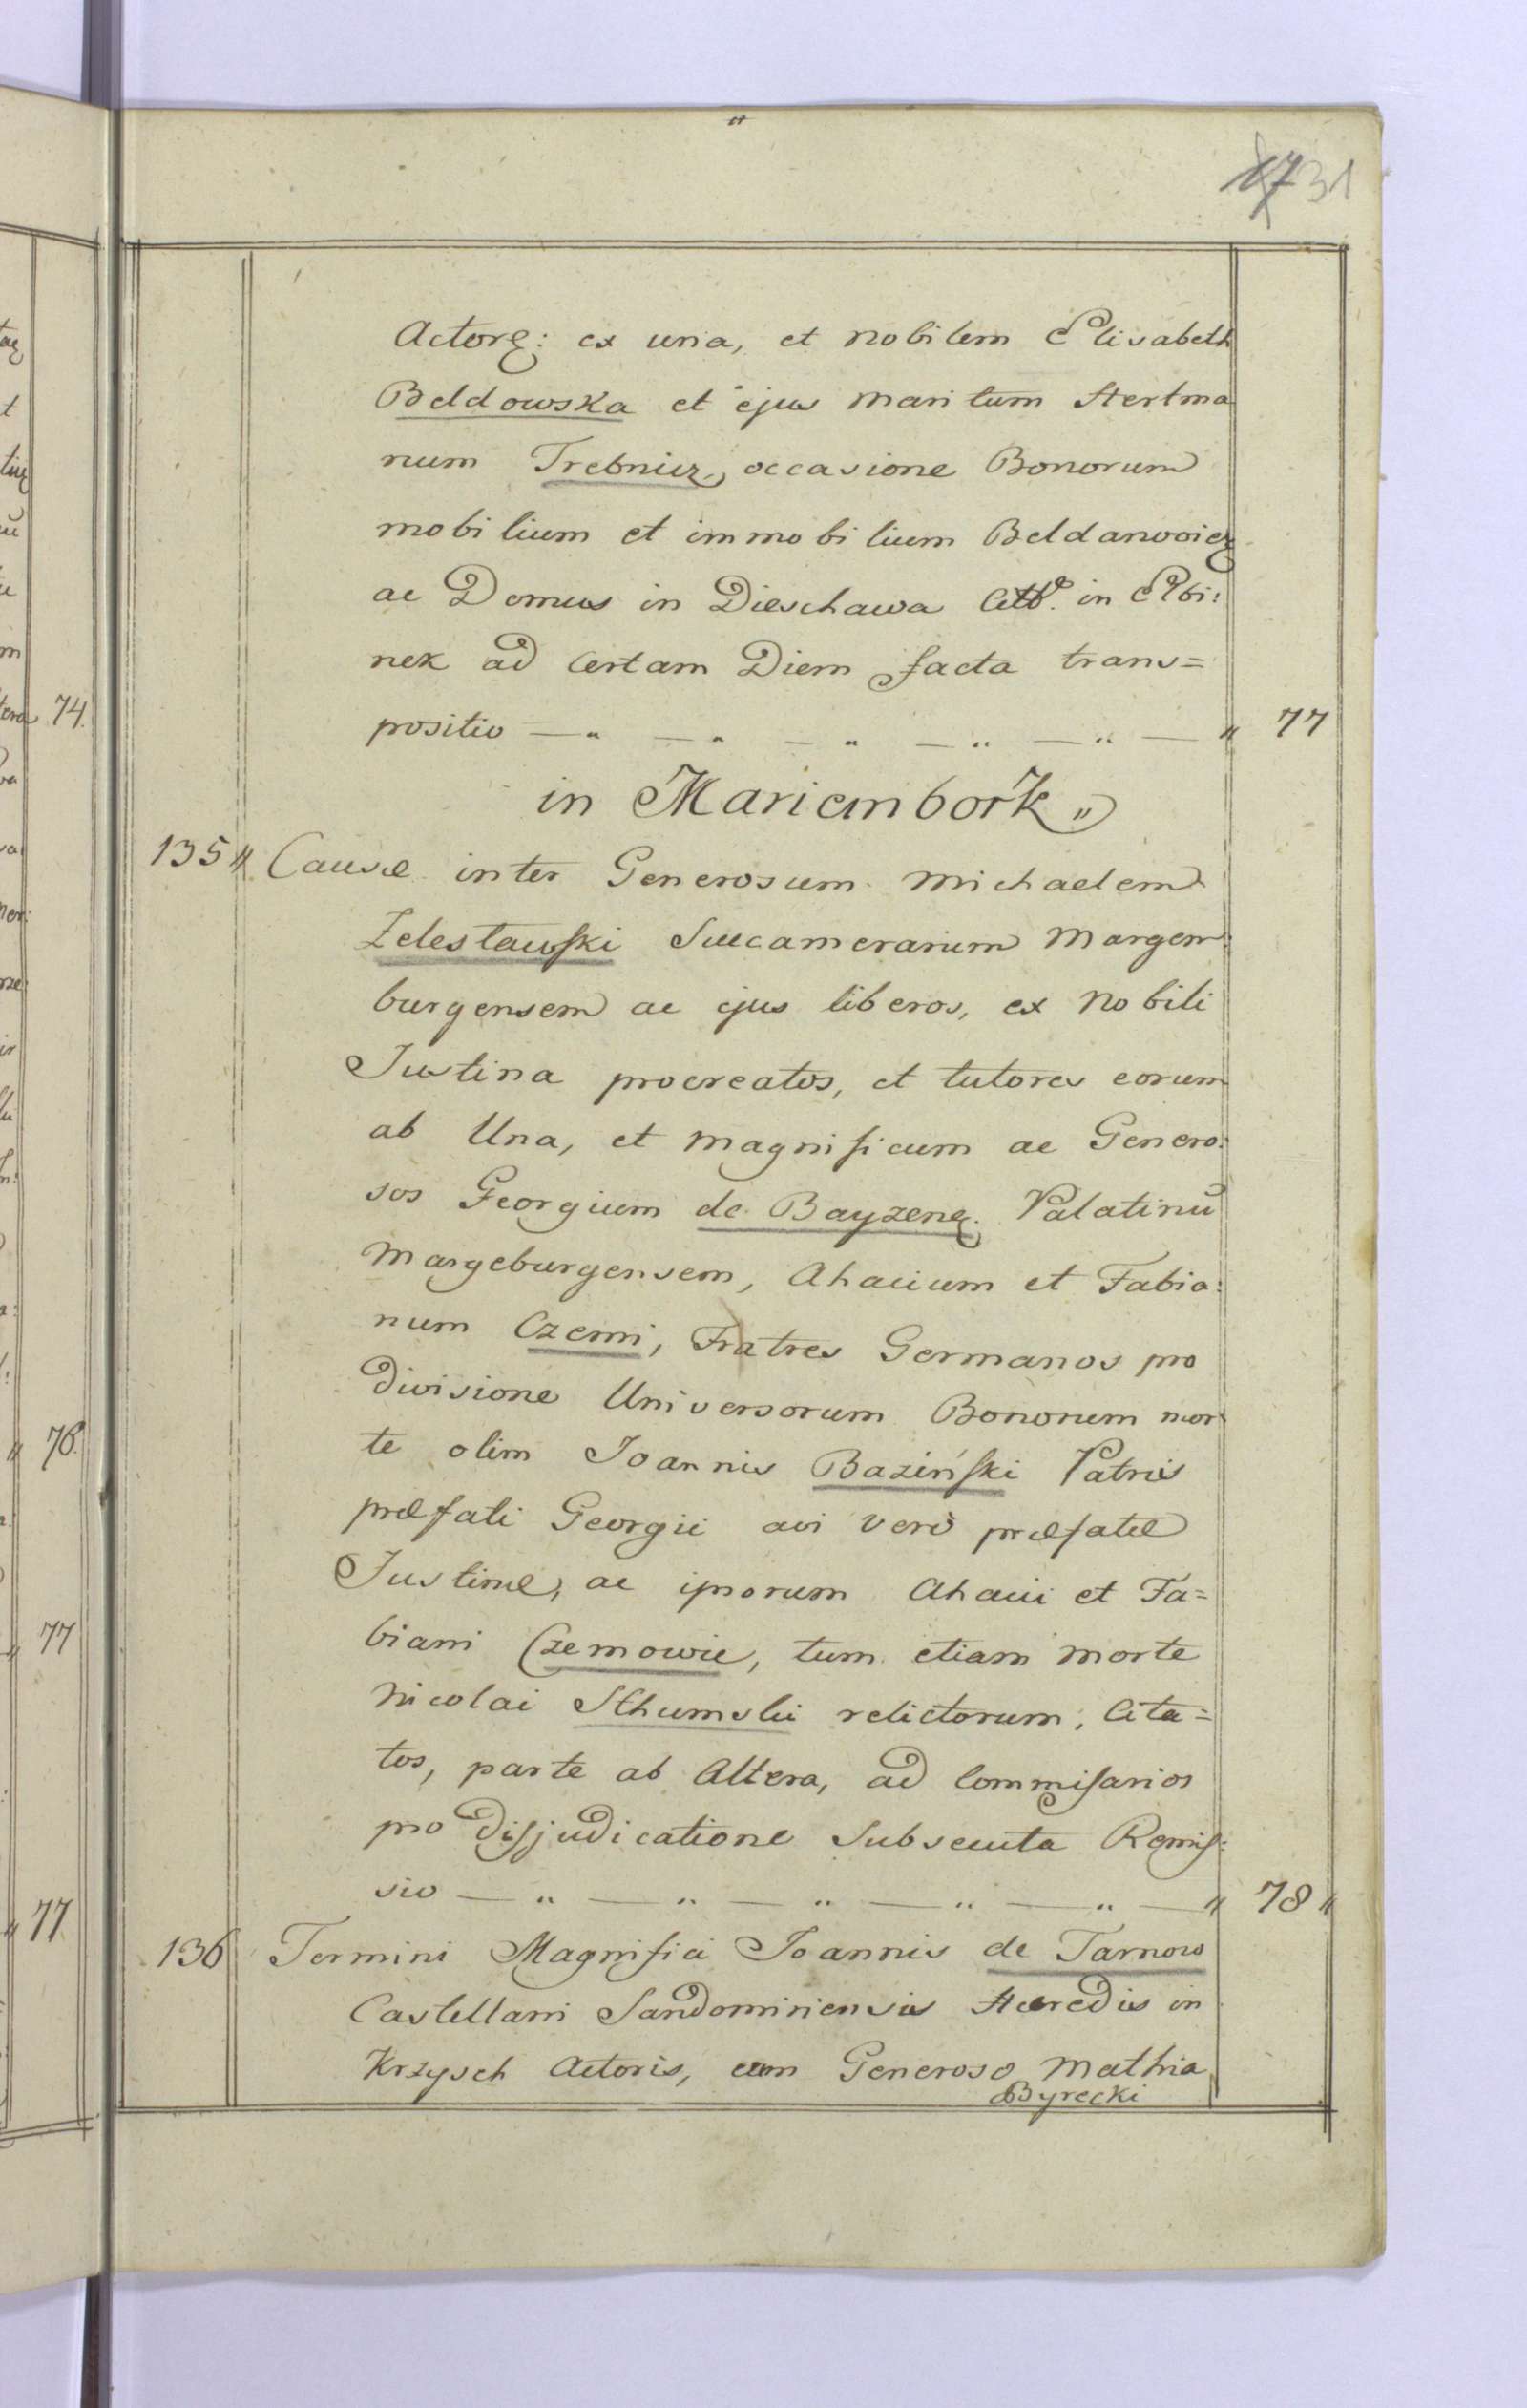 "
17 31
Actorę: ex una, et nobilem Elisabeth
Beldowska et ejus maritum Hertma
num Trebnicz, occasione Bonorum
mobilium et immobilium Beldanwoicę
ac Domus in Dieschawa in Elbi:
nek ad certam Diem facta trans=
positio — " — " — " — " — " — " 77
in Mariembork "
135 " Causæ inter Generosum Michaelem
Zelestawski Succamerarium Margem:
burgensem ac ejus liberos, ex Nobili
Justina procreatos, et tutores eorum
ab Una, et magnificum ac Genero:
sos Georgium de Bayzenę. Palatinū
Margeburgensem, Ahacium et Fabia:
num Czemi, Fratres Germanos pro
divisione Universorum Bonorum mor
te olim Joannis Baziński Patris
præfati Georgii avi verò præfatæ
Justinæ, ac ipsorum Ahacii et Fa=
biani Czemowie, tum etiam morte
Nicolai Sthumski relictorum, Cita=
tos, parte ab Altera, ad Commisarios
pro disjudicatione Subsecuta Remis:
sio — " — " — " — " — " — " 78 "
136 Termini Magnifici Joannis de Tarnow
Castellani Sandomiriensis Hæredis in
Krzysch Actoris, cum Generoso Mathia
Byrecki
74.
76.
" 77
" 77